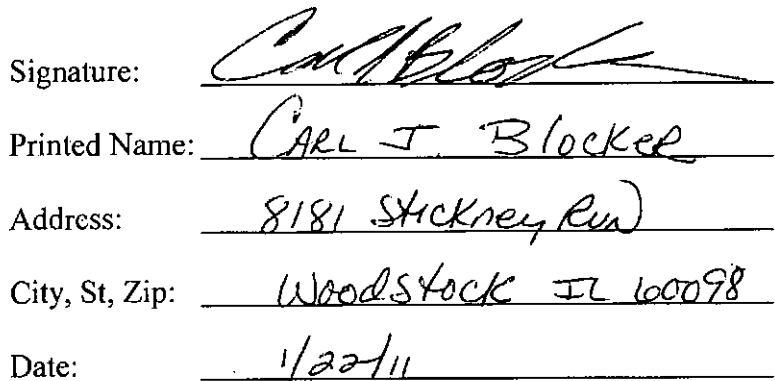 Signature: Carl J Blocker
Printed Name: CARL J. Blocker
Address: 8181 Stickney Run
City, St, Zip: Woodstock IL 60098
Date: 1/22/11